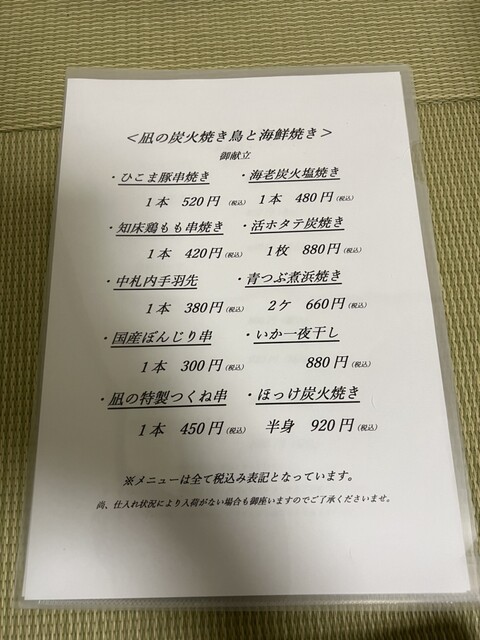 ＜凪の炭火焼き鳥と海鮮焼き＞
御献立
・ひこま豚串焼き
1本 520円(税込)
・知床鶏もも串焼き
1本 420円(税込)
・中札内手羽先
1本 380円(税込)
・国産ぼんじり串
1本 300円(税込)
・凪の特製つくね串
1本 450円(税込)
・海老炭火塩焼き
1本 480円(税込)
・活ホタテ炭焼き
1枚 880円(税込)
・青つぶ煮浜焼き
2ケ 660円(税込)
・いか一夜干し
880円(税込)
・ほっけ炭火焼き
半身 920円(税込)
※メニューは全て税込み表記となっています。
尚、仕入れ状況により入荷がない場合も御座いますのでご了承くださいませ。